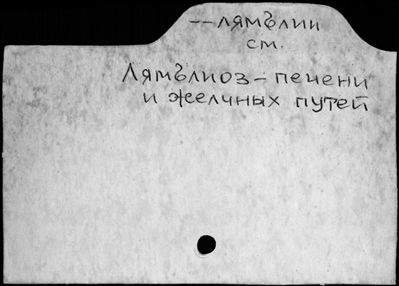 --лямблии
см.
Лямблиоз - печени
и желчных путей